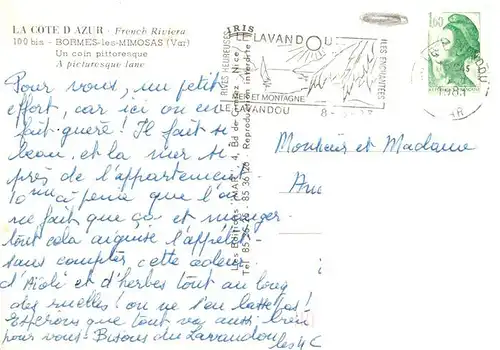 LA COTE D'AZUR - French Riviera
100 bis - BORMES-les-MIMOSAS (Var)
Un coin pittoresque
A picturesque lane
Pour vous, un petit
effort, car ici on en
fait guère! Il fait si
beau, et la mer si
près de l'appartement
10 mn à peine que l'on
ne fait que ça et manger.
tout cela aiguise l'appétit
sans compter cette odeur
d'Aïoli et d'herbes tout au long
des ruelles! on ne s'en lasse pas!
Espérons que tout va aussi bien
pour vous. Bisous du Lavandou
les 4 C
Les Editions "MAR", 4, Bd de Cimiez, Nice
Tél. 85 36 26 - 85 36 28 - Reproduction interdite
IRIS
RIVES HEUREUSES
LE LAVANDOU
ILES ENCHANTEES
ET MONTAGNE
LE LAVANDOU
1,60
Monsieur et Madame